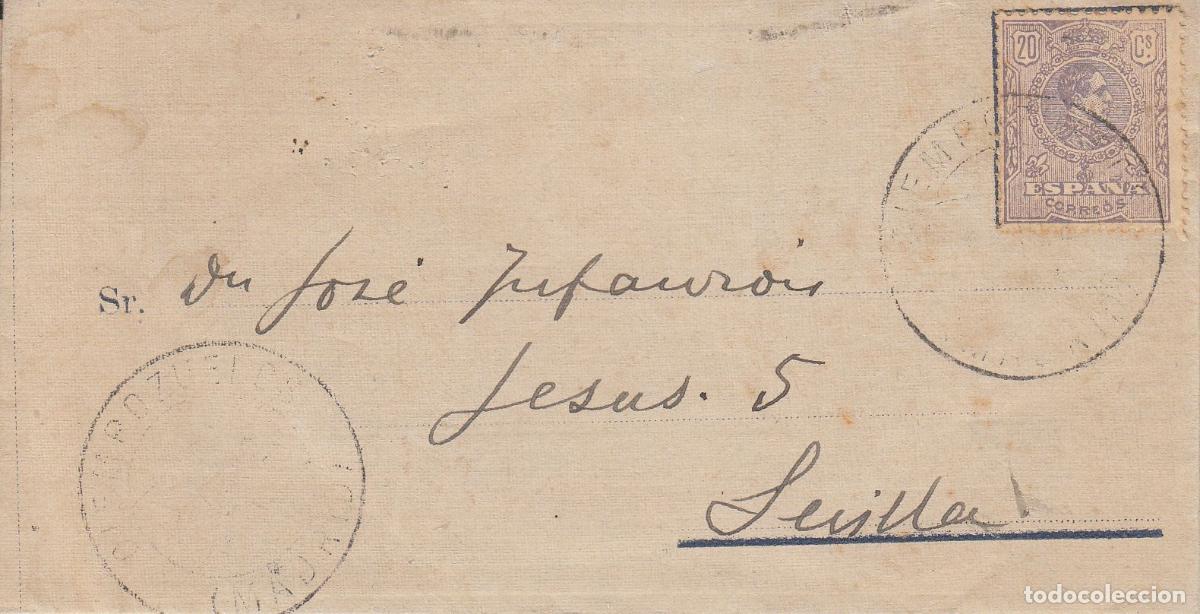 20 Cs.
ESPAÑA
CORREOS
CIEMPO
Sr. Dn José Infanzón
Jesus. 5
Sevilla
CIEMPOZUELOS
(MADRID)
todocoleccion